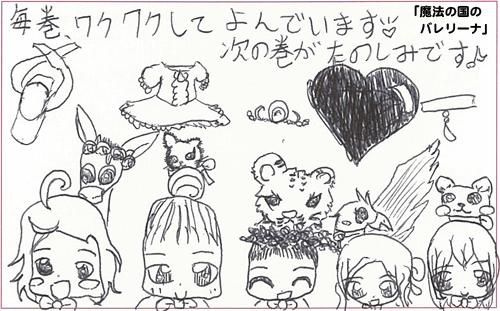 毎巻、ワクワクして よんでいます♡
次の巻が たのしみです♪
「魔法の国の
バレリーナ」